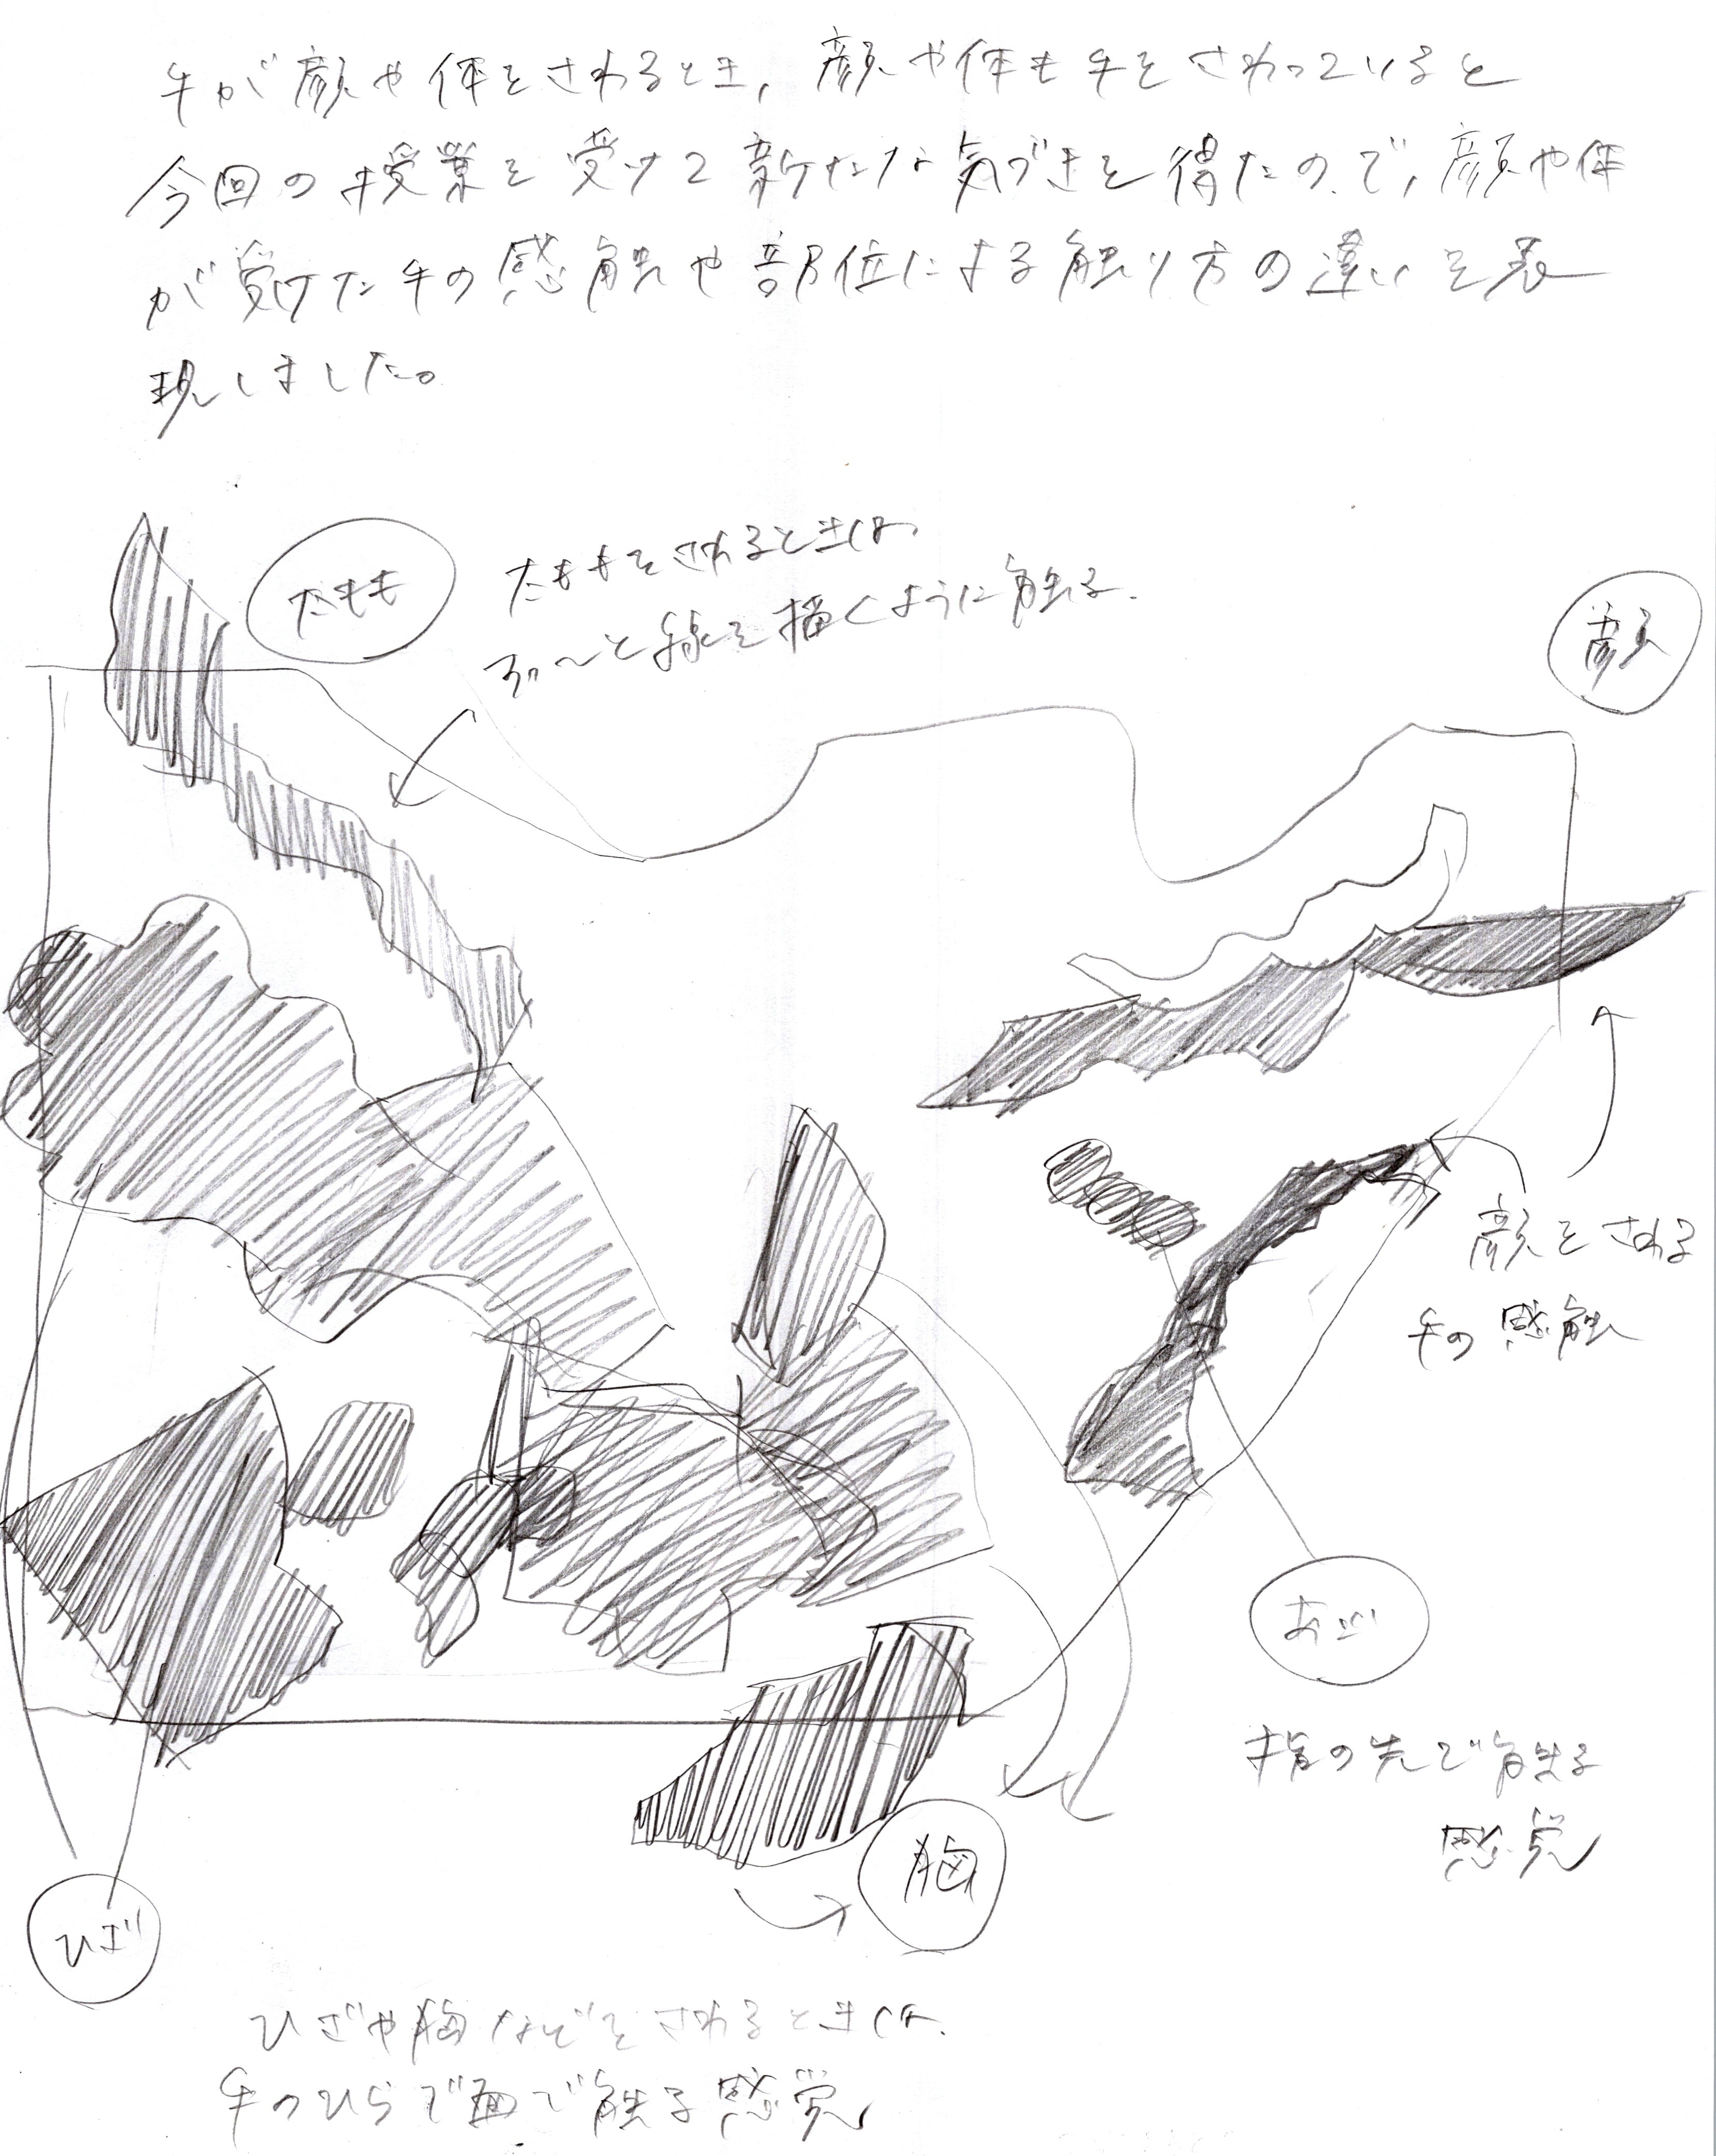 手が顔や体をさわるとき、顔や体も手をさわっていると
今回の授業を受けて新たな気づきを得たので、顔や体
が受けた手の感触や部位による触り方の違いを表
現しました。
太もも
太ももをさわるときは、
すーっと線を描くように触る。
顔
顔をさわる
手の感触
あご
指の先で触る
感覚
胸
ひざ
ひざや胸などをさわるときは、
手のひらで面で触る感覚